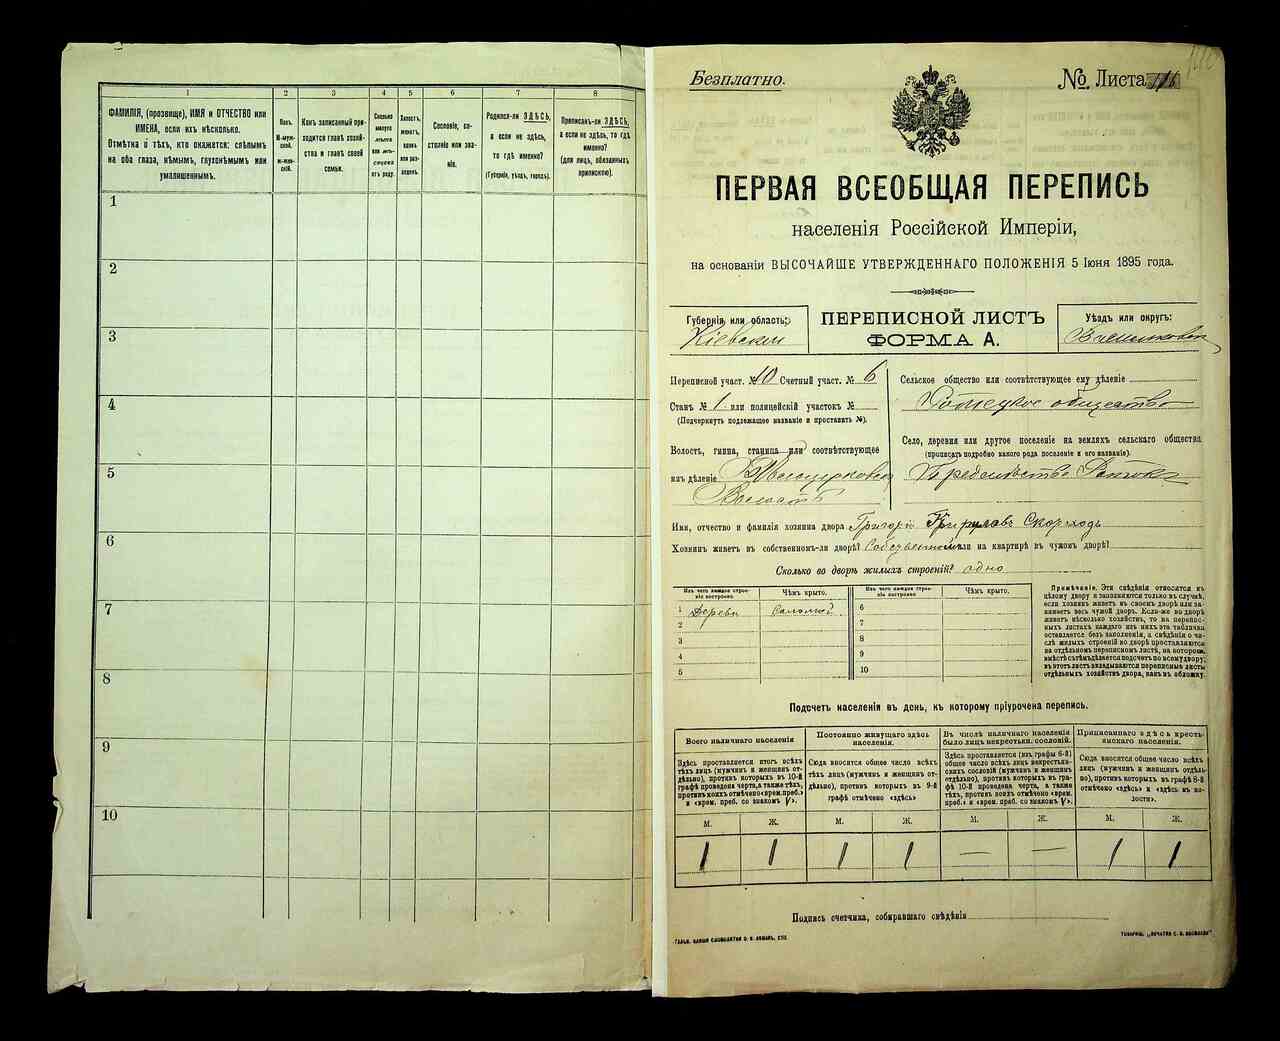 1
2
3
4
5
6
7
8
ФАМИЛІЯ, (прозвище), ИМЯ и ОТЧЕСТВО или
ИМЕНА, если ихъ нѣсколько.
Отмѣтка о тѣхъ, кто окажется: слѣпымъ
на оба глаза, нѣмымъ, глухонѣмымъ или
умалишеннымъ.
Полъ.
М-муж-
ской.
Ж-жен-
скій.
Какъ записанный при-
ходится главѣ хозяй-
ства и главѣ своей
семьи.
Сколько
минуло
лѣтъ
или мѣ-
сяцевъ
отъ роду.
Холостъ,
женатъ,
вдовъ
или раз-
веденъ.
Сословіе, со-
стояніе или зва-
ніе.
Родился-ли ЗДѢСЬ,
а если не здѣсь,
то гдѣ именно?
(Губернія, уѣздъ, городъ).
Приписанъ-ли ЗДѢСЬ,
а если не здѣсь, то гдѣ
именно?
(для лицъ, обязанныхъ
припискою).
1
2
3
4
5
6
7
8
9
10
Безплатно.
№ Листа 116
ПЕРВАЯ ВСЕОБЩАЯ ПЕРЕПИСЬ
населенія Россійской Имперіи,
на основаніи ВЫСОЧАЙШЕ УТВЕРЖДЕННАГО ПОЛОЖЕНІЯ 5 Іюня 1895 года.
Губернія или область:
Кіевская
ПЕРЕПИСНОЙ ЛИСТЪ
ФОРМА А.
Уѣздъ или округъ:
Васильковск
Переписной участ. № 10 Счетный участ. № 6
Станъ № 1 или полицейскій участокъ №
(Подчеркнуть подлежащее названіе и проставить №).
Волость, гмина, станица или соотвѣтствующее
имъ дѣленіе
Волость
Сельское общество или соотвѣтствующее ему дѣленіе
общество
Село, деревня или другое поселеніе на земляхъ сельскаго общества
(прописать подробно какого рода поселеніе и его названіе).
Имя, отчество и фамилія хозяина двора Григорій Кириловъ Скороходь
Хозяинъ живетъ въ собственномъ-ли дворѣ? Собственномъ или на квартирѣ въ чужомъ дворѣ?
Сколько во дворѣ жилыхъ строеній? одно
Изъ чего каждое строе-
ніе построено.
Чѣмъ крыто.
1 Дерева Соломой
2
3
4
5
Изъ чего каждое строе-
ніе построено.
Чѣмъ крыто.
6
7
8
9
10
Примѣчаніе. Эти свѣдѣнія относятся къ
цѣлому двору и заполняются только въ случаѣ,
если хозяинъ живетъ въ своемъ дворѣ или за-
нимаетъ весь чужой дворъ. Если-же во дворѣ
живетъ нѣсколько хозяйствъ, то на перепис-
ныхъ листахъ каждаго изъ нихъ эта табличка
оставляется безъ заполненія, а свѣдѣнія о чи-
слѣ жилыхъ строеній во дворѣ проставляются
на отдѣльномъ переписномъ листѣ, на которомъ
вмѣстѣ съ тѣмъ дѣлается подсчетъ по всему двору;
въ этотъ листъ вкладываются переписные листы
отдѣльныхъ хозяйствъ двора, какъ въ обложку.
Подсчетъ населенія въ день, къ которому пріурочена перепись.
Всего наличнаго населенія
Здѣсь проставляется итогъ всѣхъ
тѣхъ лицъ (мужчинъ и женщинъ от-
дѣльно), противъ которыхъ въ 10-й
графѣ проведена черта, а также тѣхъ,
противъ коихъ отмѣчено «врем. преб.»
и «врем. преб. со знакомъ V».
Постоянно живущаго здѣсь
населенія.
Сюда вносится общее число всѣхъ
тѣхъ лицъ (мужчинъ и женщинъ от-
дѣльно), противъ которыхъ въ 9-й
графѣ отмѣчено «здѣсь»
Въ числѣ наличнаго населенія
было лицъ некрестьян. сословій.
Здѣсь проставляется (изъ графы 6-й)
общее число всѣхъ лицъ некрестьян-
скихъ сословій (мужчинъ и женщинъ
отдѣльно), противъ которыхъ въ гра-
фѣ 10-й проведена черта, а также
тѣхъ, противъ коихъ отмѣчено «врем.
преб.» и «врем. преб. со знакомъ V».
Приписаннаго здѣсь кресть-
янскаго населенія.
Сюда вносится общее число всѣхъ
лицъ (мужчинъ и женщинъ отдѣль-
но), противъ которыхъ въ графѣ 8-й
отмѣчено «здѣсь» и «здѣсь въ во-
лости».
М. Ж. М. Ж. М. Ж. М. Ж.
1 1 1 1 — — 1 1
Подпись счетчика, собиравшаго свѣдѣнія